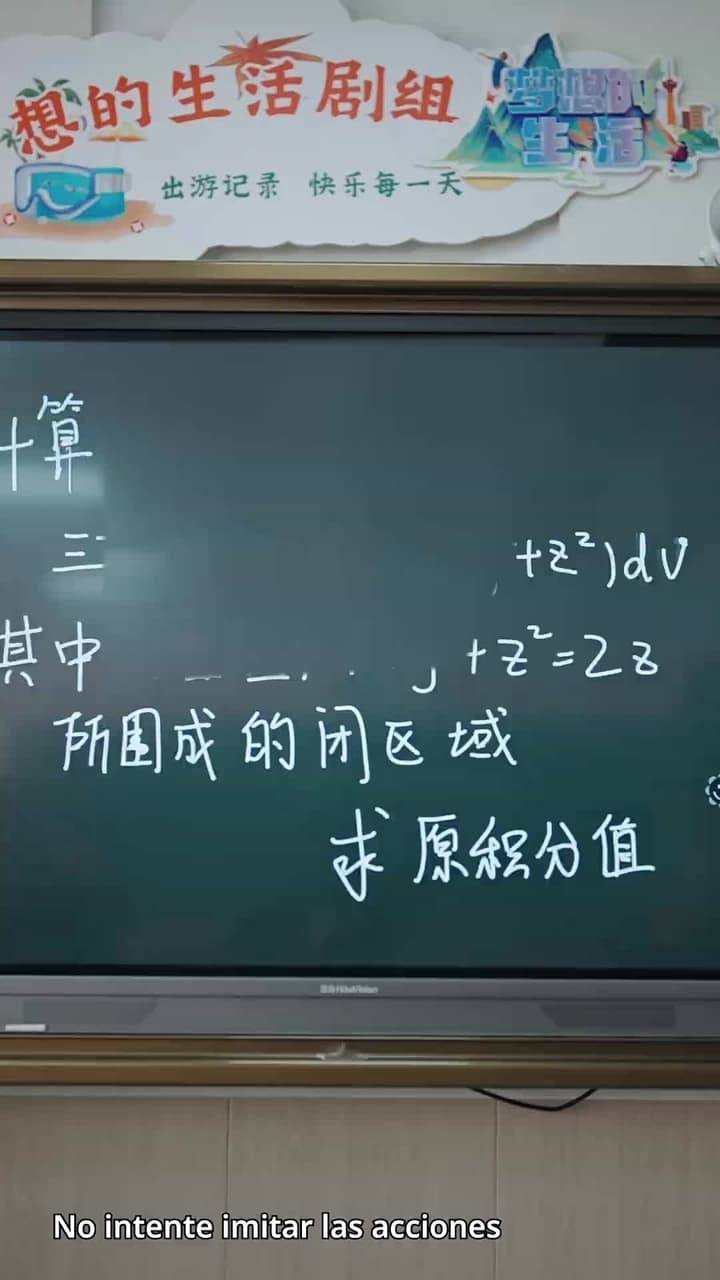 想的生活剧组
梦想的
生活
出游记录 快乐每一天
计算
三 +z²)dv
其中 +z²=2z
所围成的闭区域
求原积分值
No intente imitar las acciones